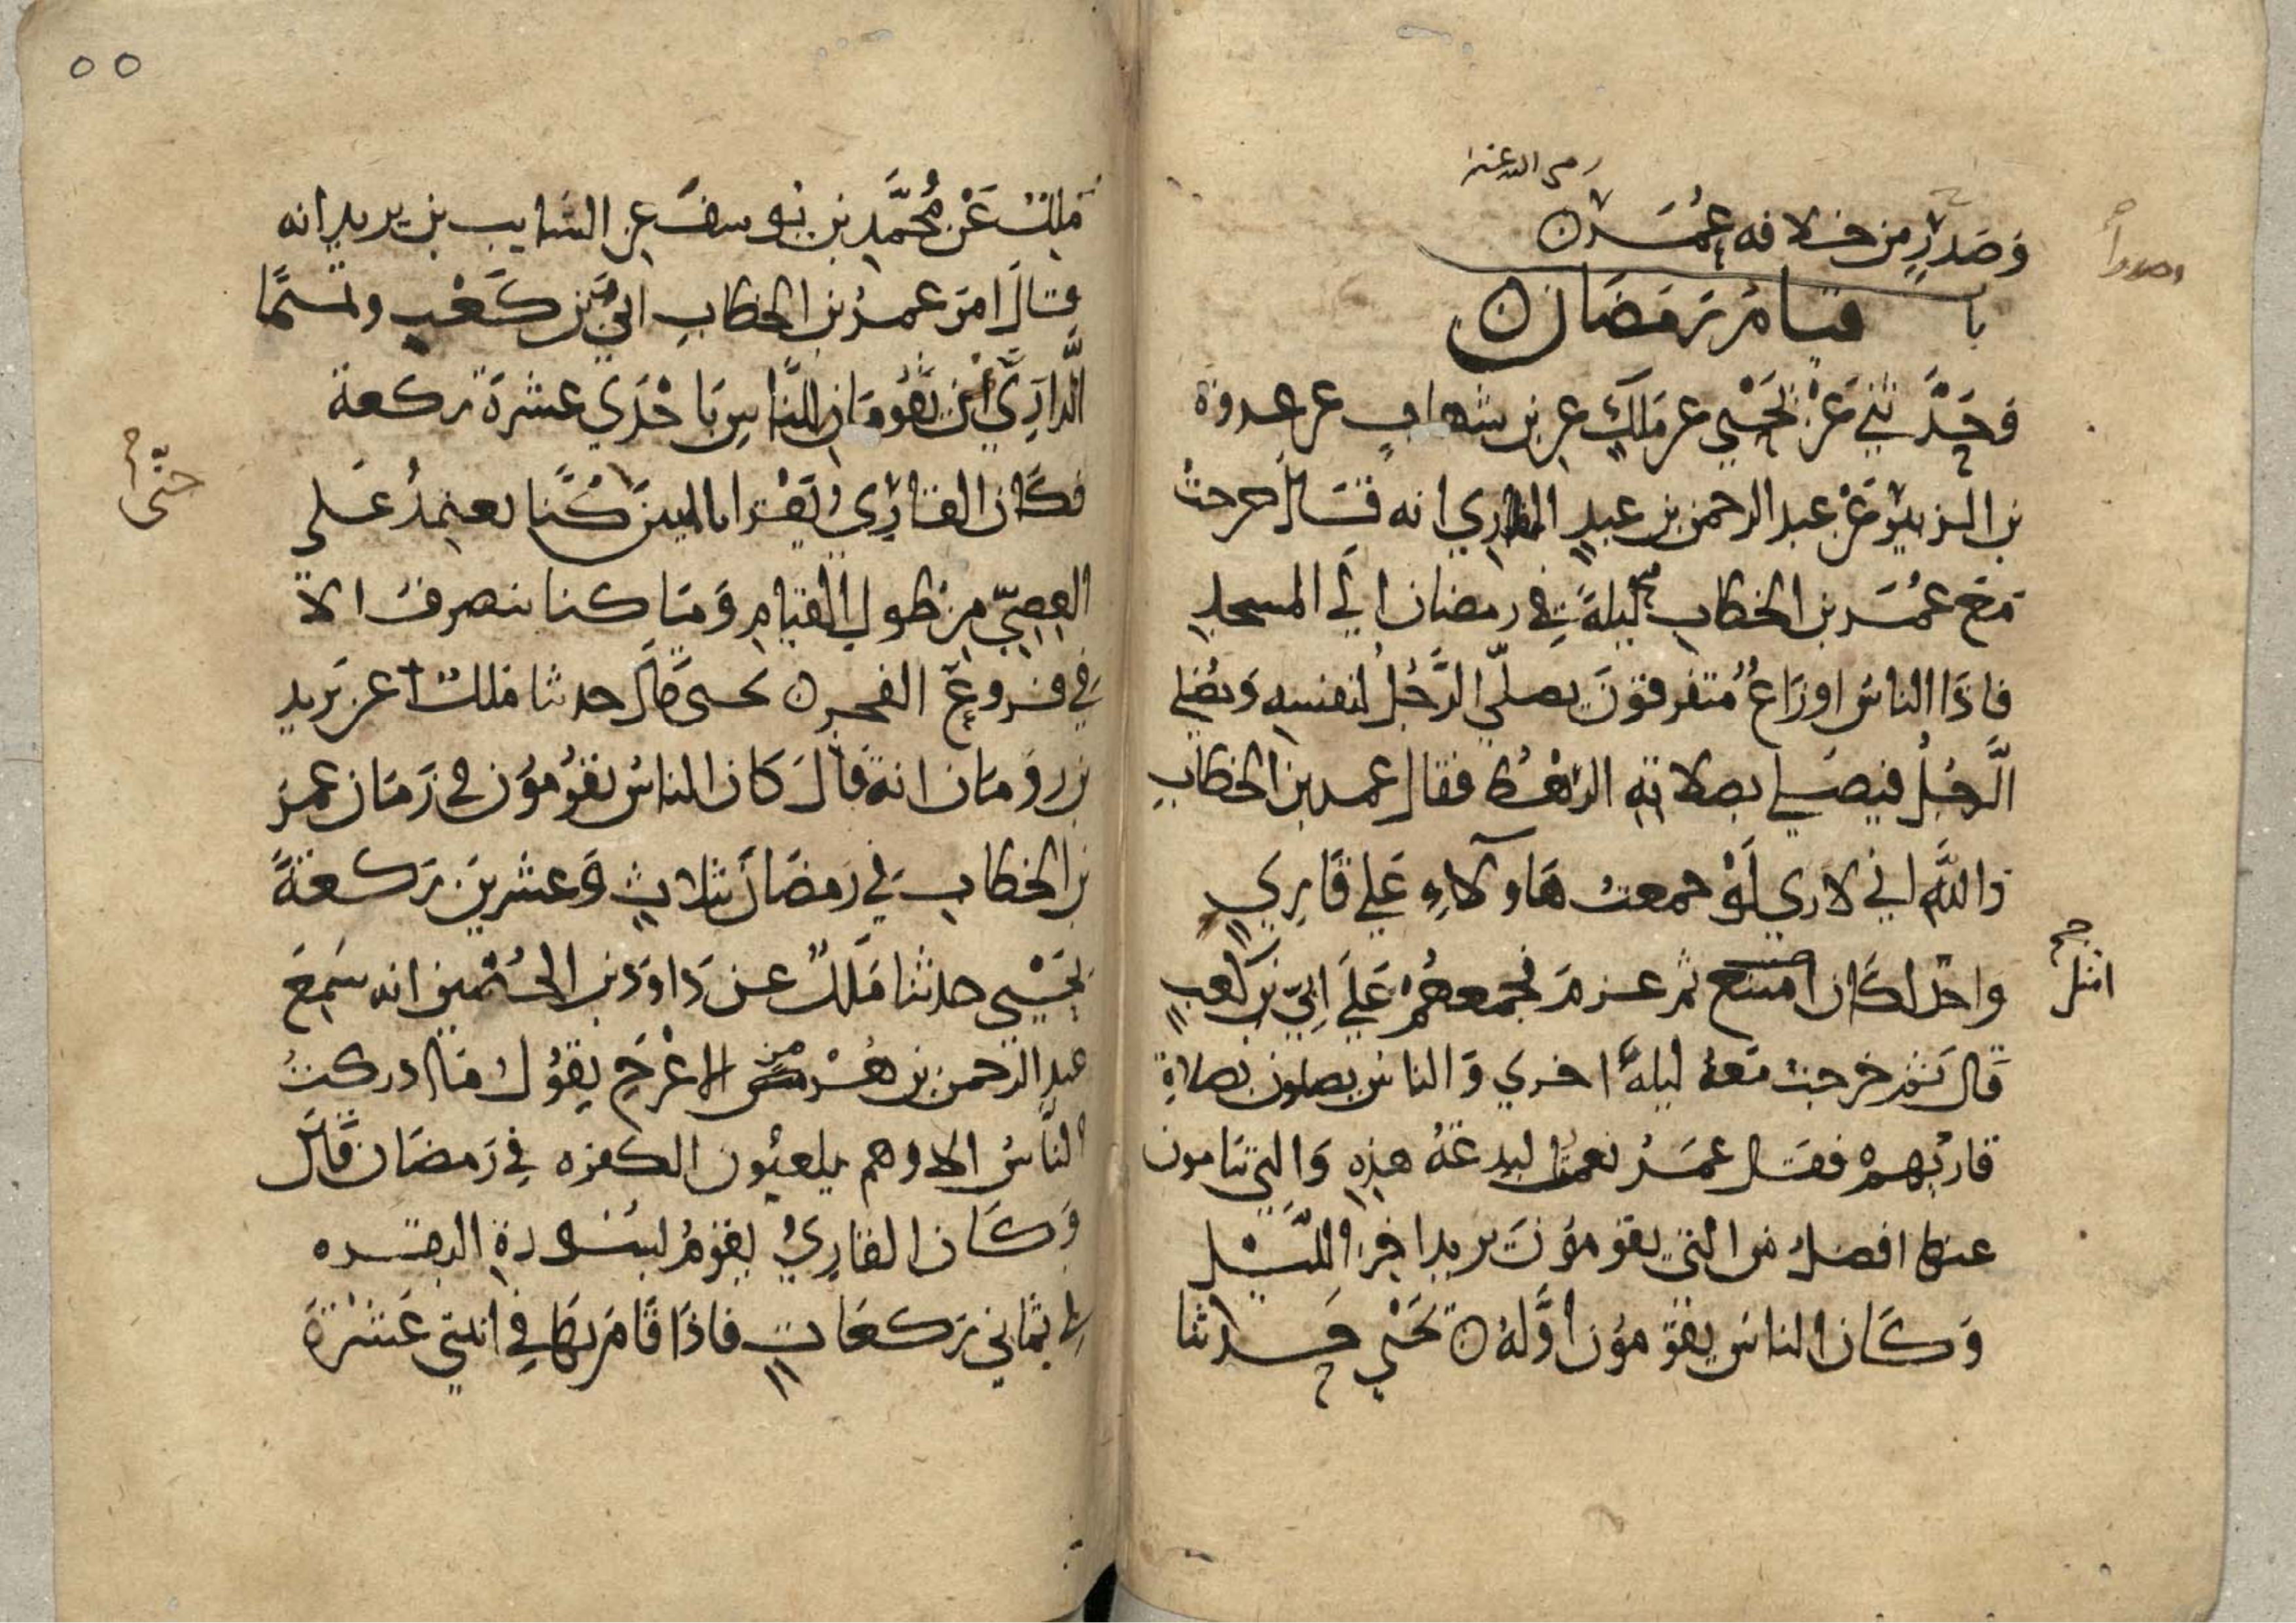 رضى الله عنه
وصدر من خلافه عمر
وصدرا
با قيام رمضان
وحدثني عن يحيي عن ملك عن بن شهاب عن عروة
بن الزبير عن عبد الرحمن بن عبد القاري انه قال خرجت
مع عمر بن الخطاب ليلة في رمضان الي المسجد
فاذا الناس اوزاع متفرقون يصلي الرجل لنفسه ويصلي
الرجل فيصلي بصلاته الرهط فقال عمر بن الخطاب
والله اني لاري لو جمعت هاولاء علي قاري
واحد لكان امتنع ثم عزم فجمعهم علي ابي بن كعب
امثل
قال ثم خرجت معه ليلة اخري والناس يصلون بصلاة
قاريهم فقال عمر نعمت البدعة هذه والتي تنامون
عنها افضل من التي يقومون يريد اخر الليل
وكان الناس يقومون اوله يحيي حدثنا
٥٥
ملك عن محمد بن يوسف عن السايب بن يزيد انه
قال امر عمر بن الخطاب ابي بن كعب وتميما
الداري ان يقومان للناس باحدي عشرة ركعة
فكان القاري يقرا بالميين كنا نعتمد علي
حتى
العصي من طول القيام وما كنا ننصرف الا
في فروع الفجر يحيى قال حدثنا ملك عن يزيد
بن رومان انه قال كان الناس يقومون في زمان عمر
بن الخطاب في رمضان بثلاث وعشرين ركعة
يحيي حدثنا ملك عن داود بن الحصين انه سمع
عبد الرحمن بن هرمز الاعرج يقول ما ادركت
الناس الا وهم يلعنون الكفره في رمضان قال
وكان القاري يقوم بسورة البقره
في ثماني ركعات فاذا قام بها في اثنتي عشرة